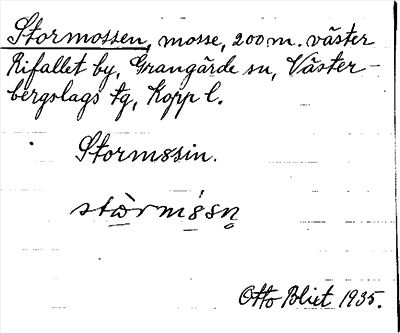 Stormossen, mosse, 200 m. väster
Rifallet by, Grangärde sn, Väster-
bergslags tg, Kopp l.
Stormssin.
Otto Blixt 1935.